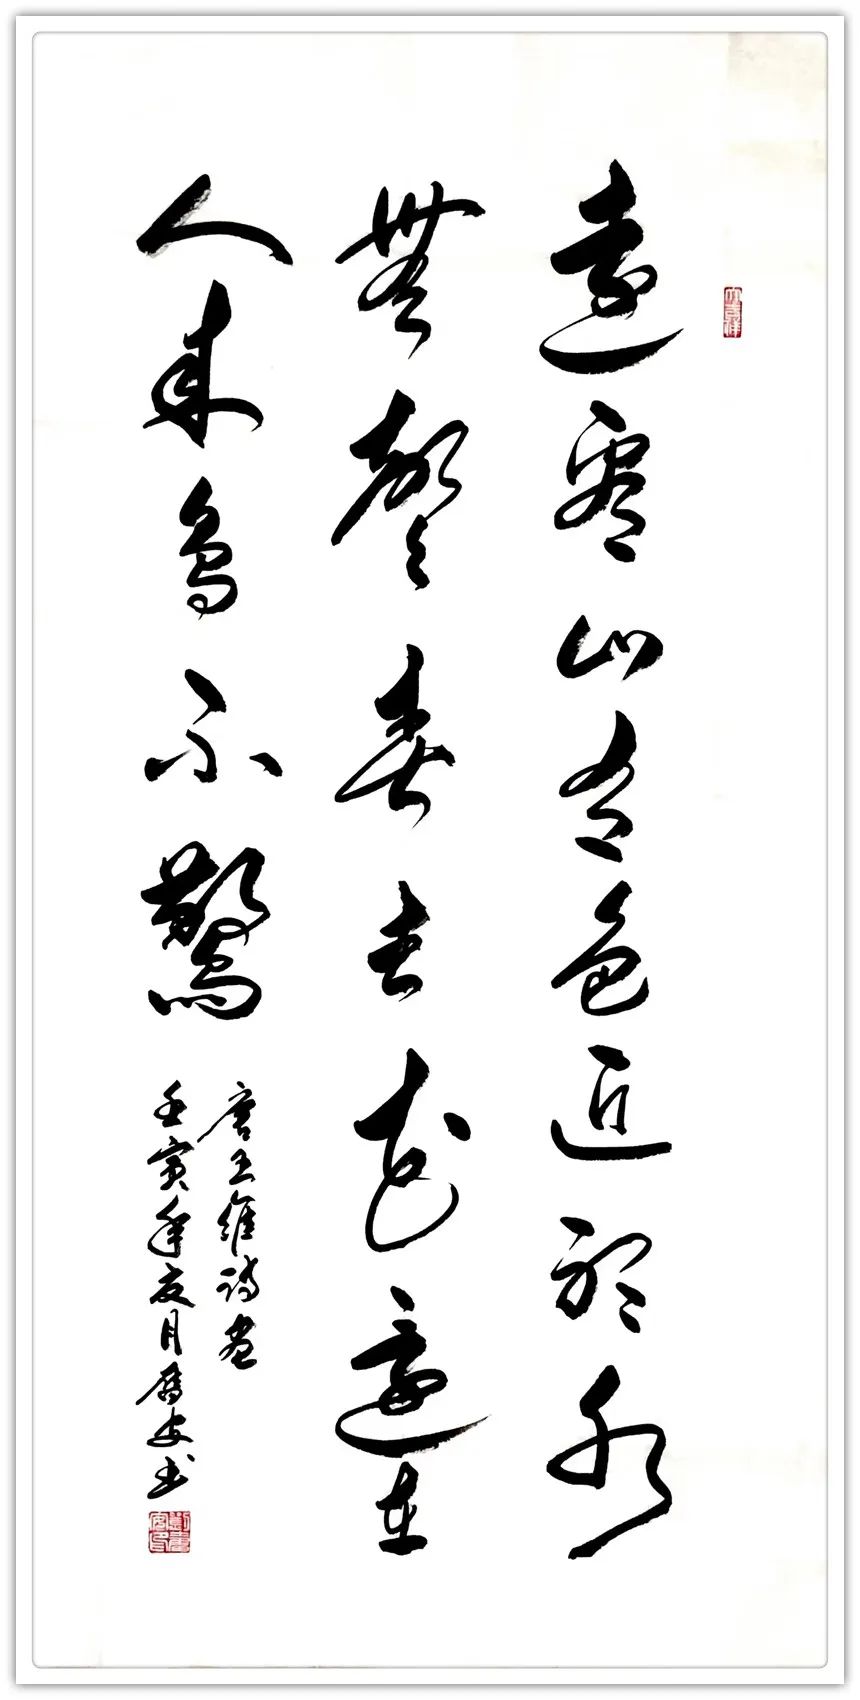 遠看山有色近聽水
無聲春去花還在
人來鳥不驚
唐王維詩畫
壬寅年夏月安书